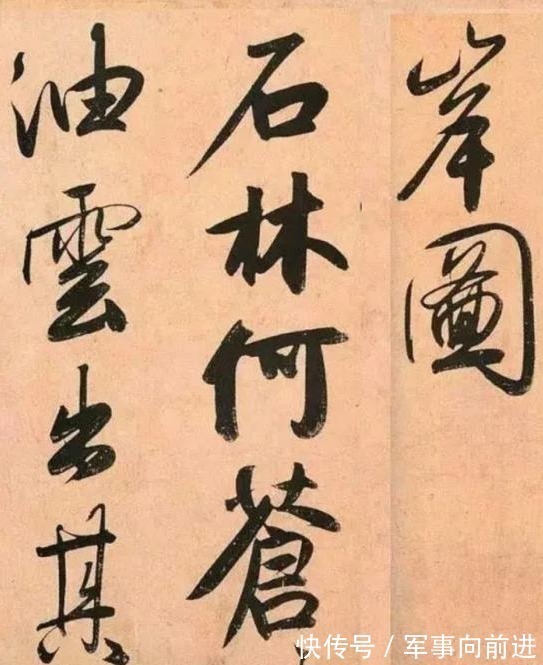 岸圖
石林何蒼
油雲出其
快传号 / 军事向前进